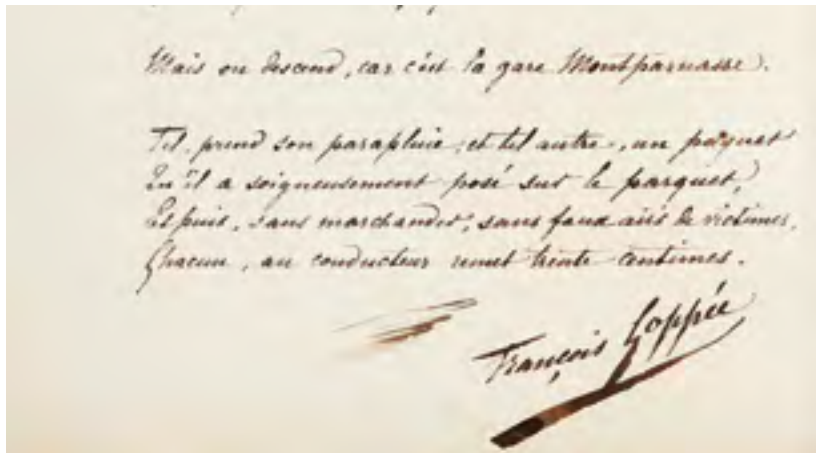 Mais on descend, car c'est la gare Montparnasse.
Tel, prend son parapluie, et tel autre, un paquet
Qu'il a soigneusement posé sur le parquet,
Et puis, sans marchander, sans faux airs de victimes,
Chacun, au conducteur remet trente centimes.
François Coppée